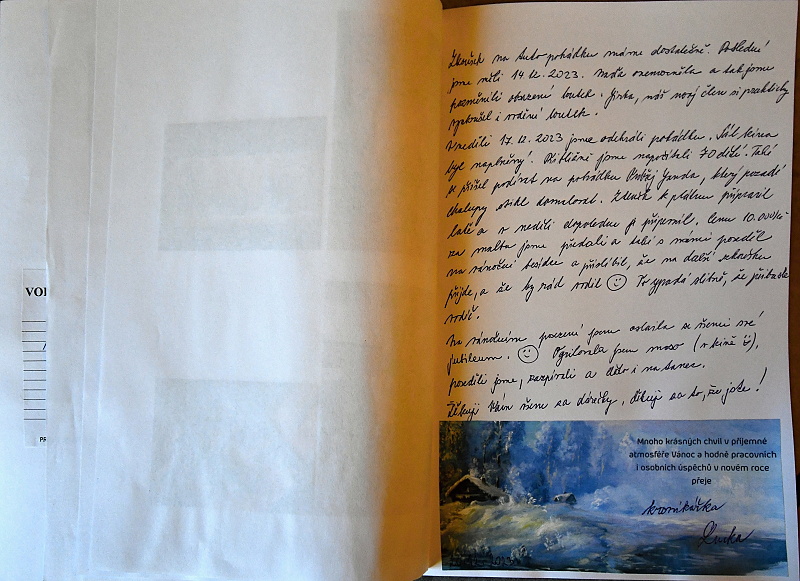 VOL
PR
Zkoušek na tuto pohádku máme dostatečně. Poslední
jsme měli 14.12.2023. Naďa onemocněla a tak jsme
pozměnili obsazení loutek. Jirka, náš nový člen si prakticky
vyzkoušel i vodění loutek.
V neděli 17.12.2023 jsme odehráli pohádku. Sál kina
byl naplněný. Přibližně jsme napočítali 70 dětí. Také
se přišel podívat na pohádku Ondřej Janda, který pozadí
chalupy stihl domalovat. Zdeněk k plátnu připravil
latě a v neděli dopoledne je připevnil. Cenu 10.000 Kč
za malbu jsme předali a také s námi poseděl
na vánoční besídce a přislíbil, že na další zkoušku
přijde, a že by rád vodil ☺ To vypadá slibně, že přibude
vodič.
Na vánočním posezení jsem oslavila se všemi své
jubileum. ☺ Ogrilovala jsem maso (v kině ☺),
poseděli jsme, zazpívali a došlo i na tanec.
Děkuji Vám všem za dárečky, děkuji za to, že jste!
Mnoho krásných chvil v příjemné
atmosféře Vánoc a hodně pracovních
i osobních úspěchů v novém roce
přeje
kronikářka